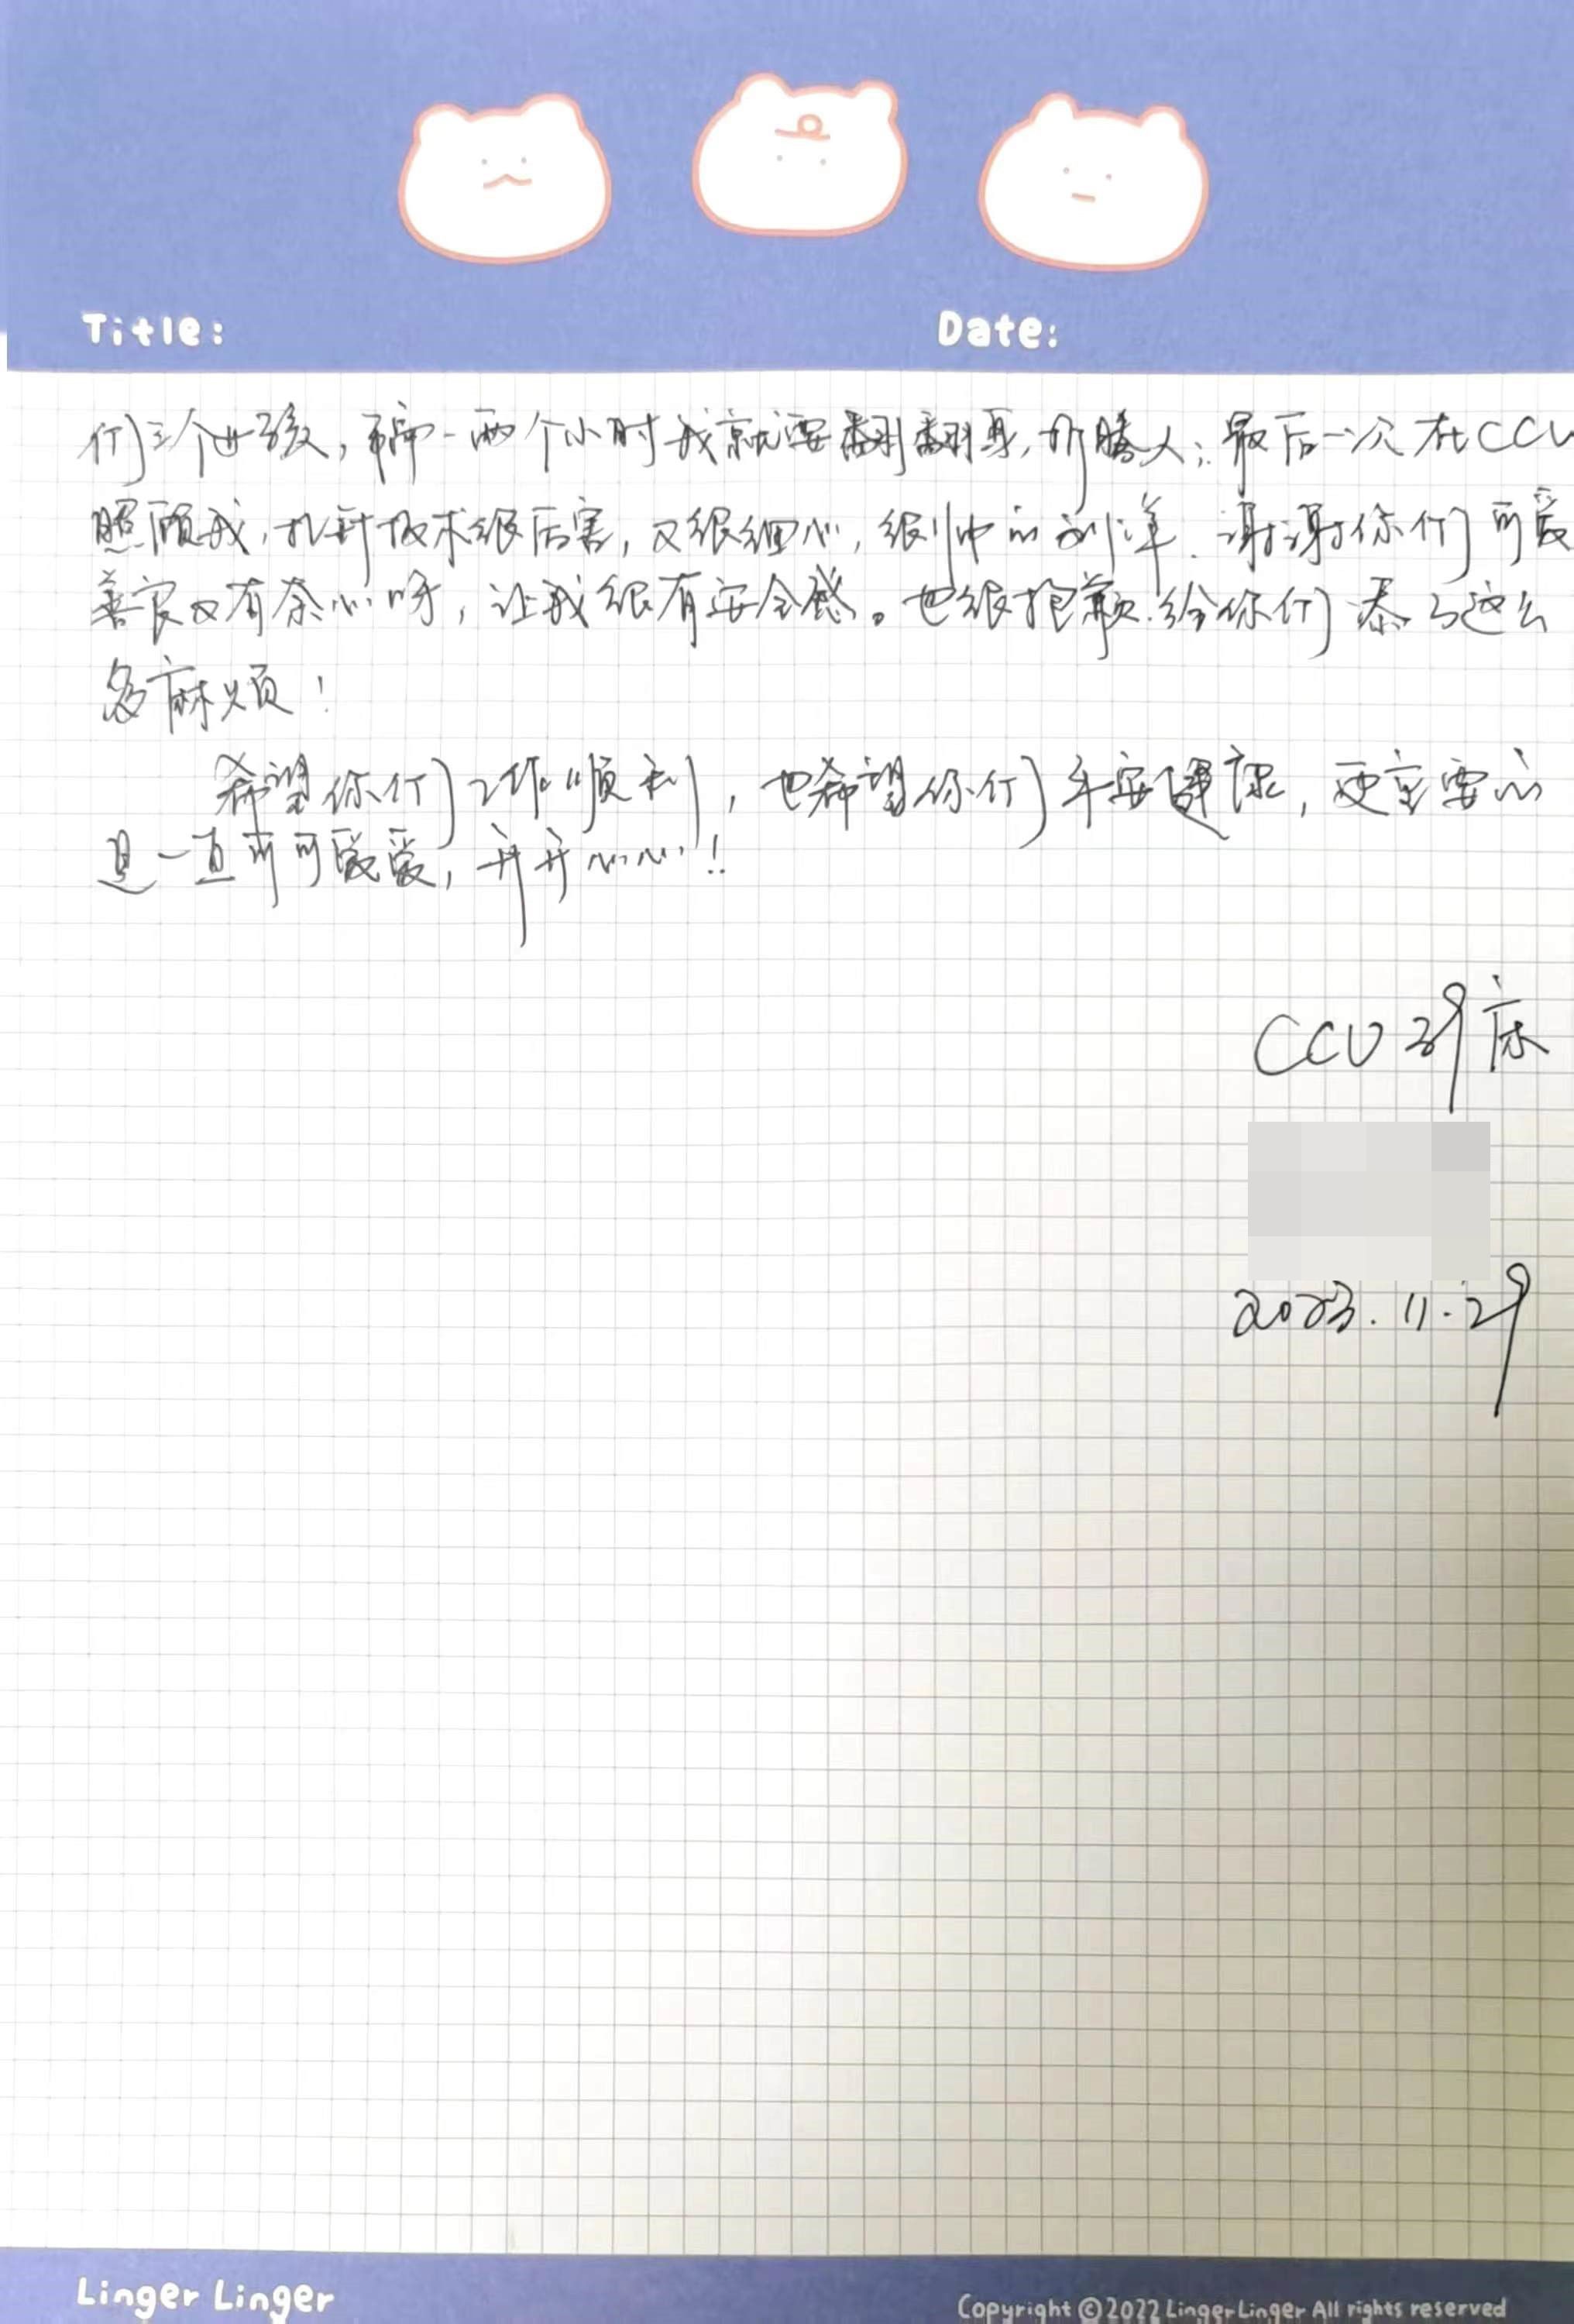 Title:
Date:
们三个女孩,每一两个小时我就要翻翻身,折腾人;最后一次在CCU
照顾我,扎针技术很厉害,又很细心,很帅的刘洋.谢谢你们可爱
善良又有奈心呀,让我很有安全感。也很抱歉.给你们添了这么
多麻烦!
希望你们工作顺利,也希望你们平安健康,更重要的
是一直可可爱爱,开开心心!
CCU 39床
2023.11.29
Linger Linger
Copyright ©2022 LingerLinger All rights reserved